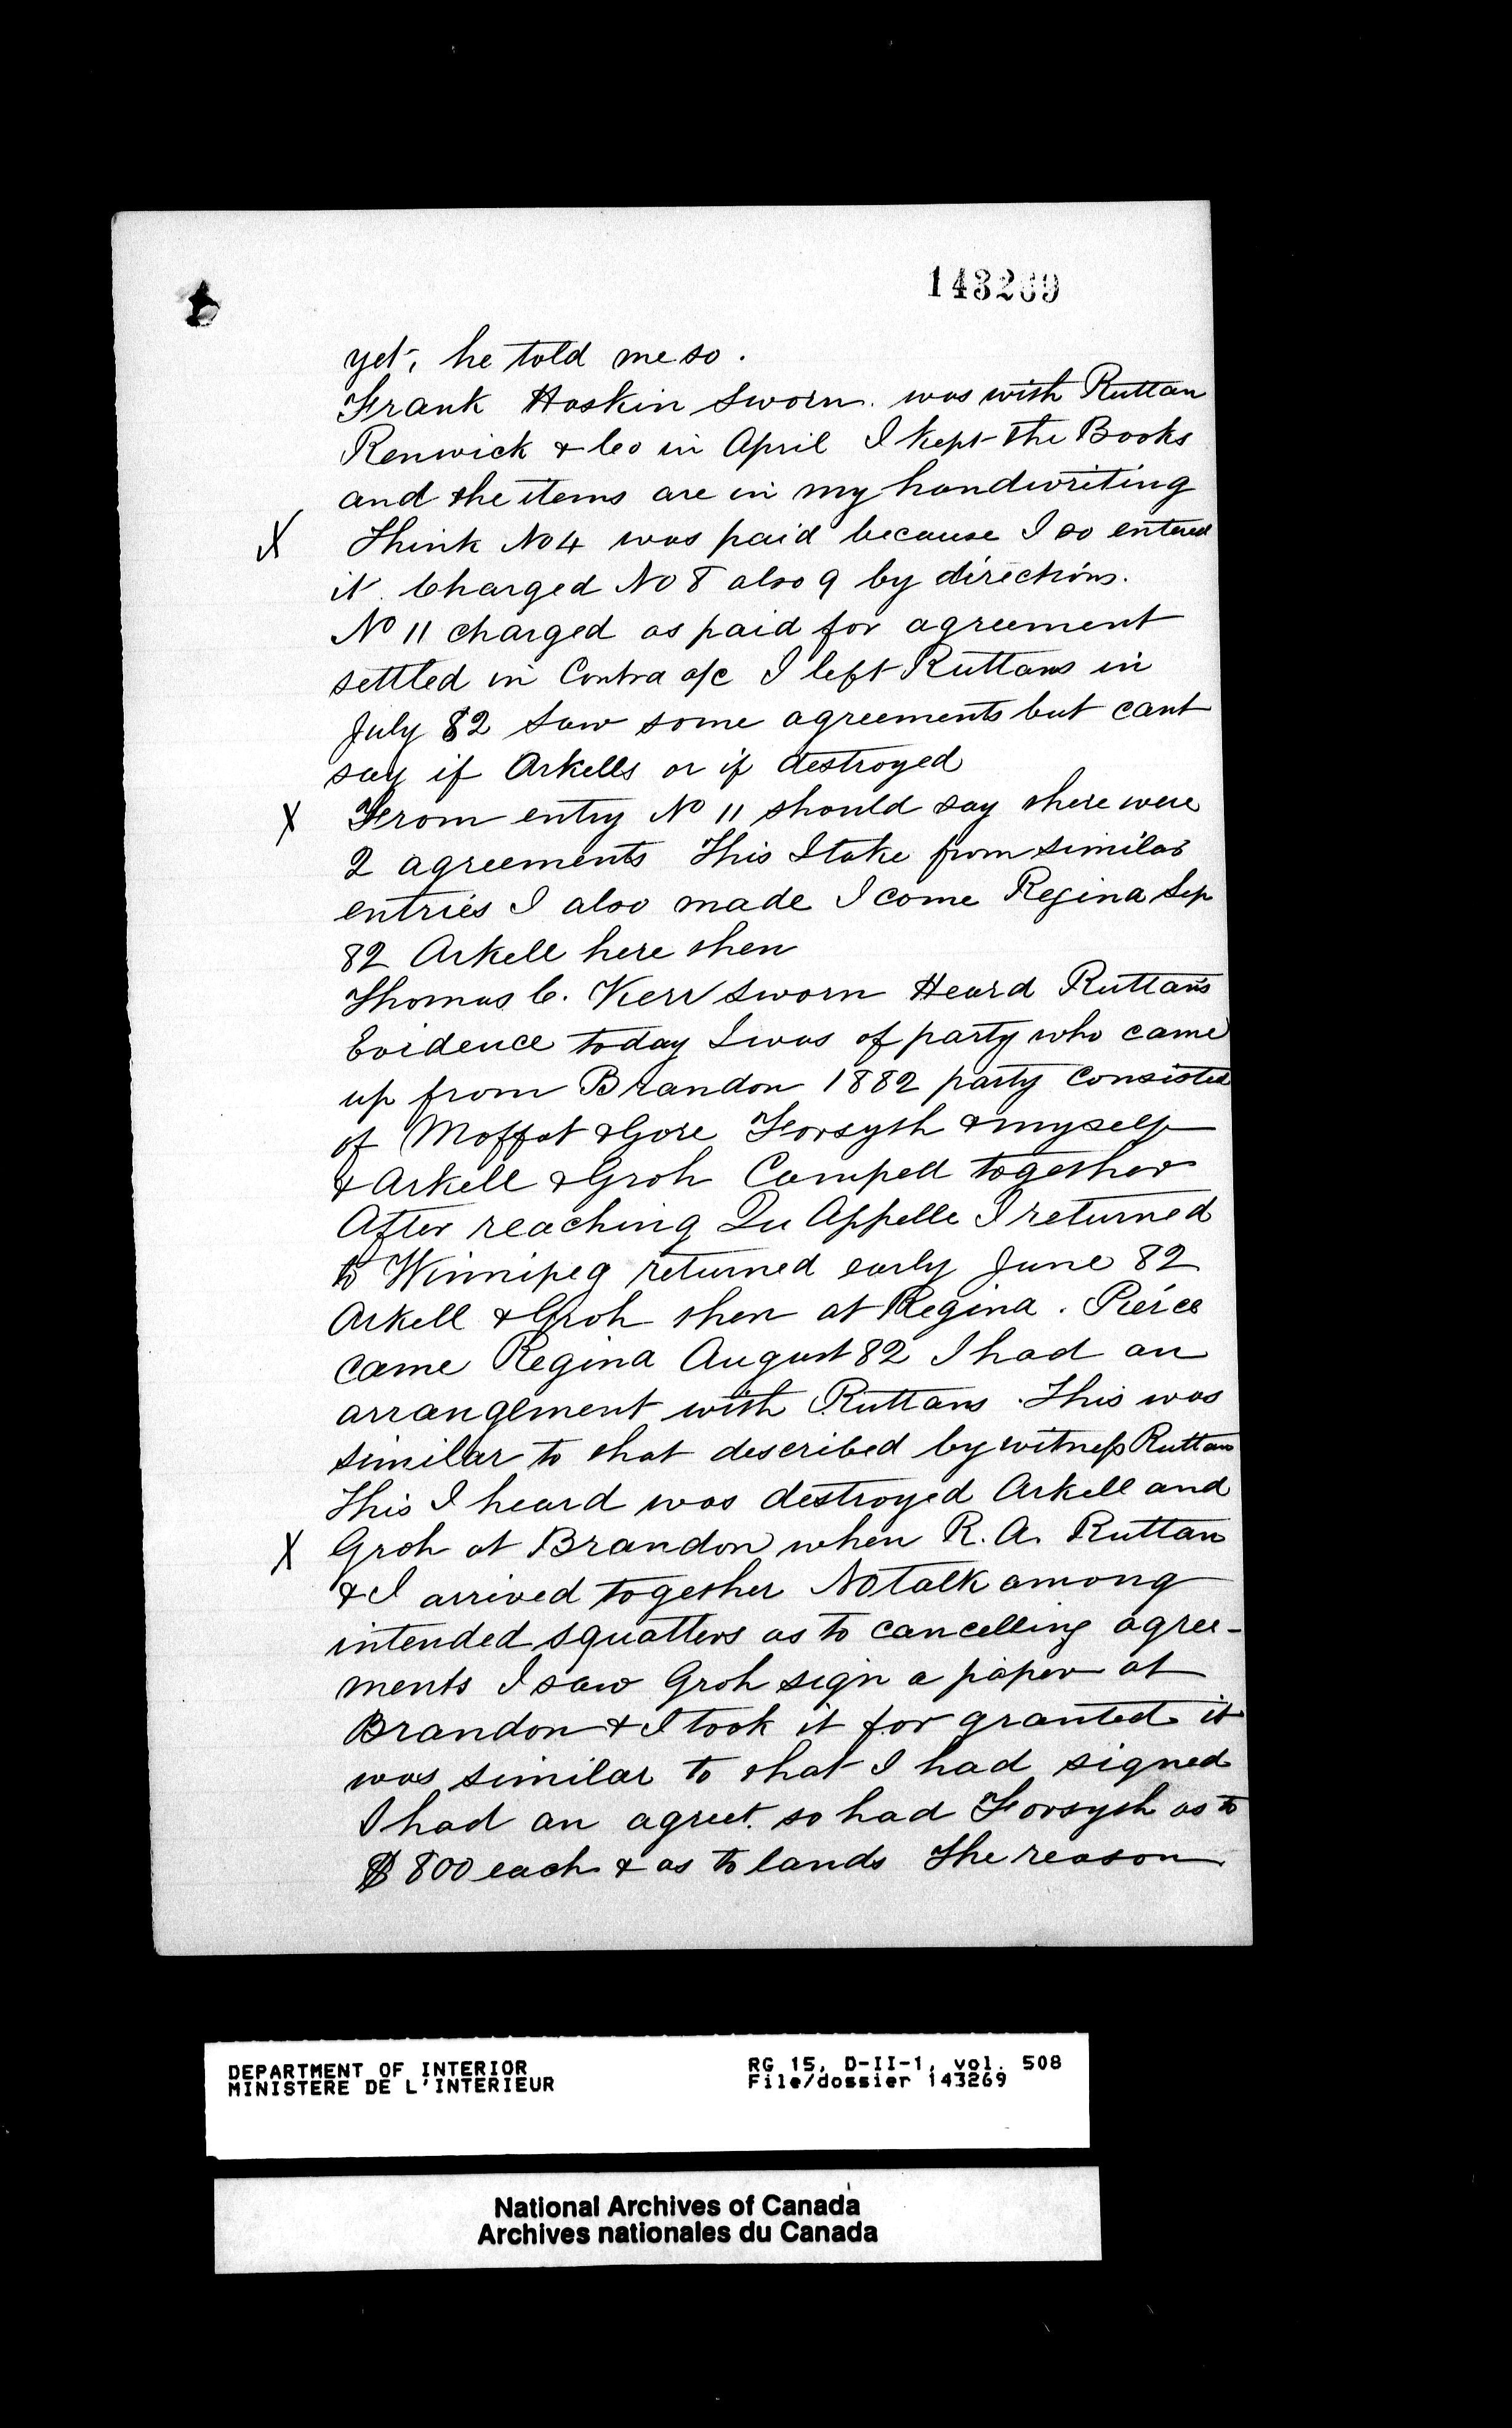 143269
yet, he told me so.
Frank Hoskin Sworn. was with Ruttan
Renwick & Co in April I kept the Books
and the items are in my handwriting
X Think No 4 was paid because I so entered
it. Charged No 8 also 9 by directions.
No 11 charged as paid for agreement
settled in Contra a/c I left Ruttans in
July 82 Saw some agreements but cant
say if Arkells or if destroyed
X From entry No 11 should say there were
2 agreements This I take from similar
entries I also made I come Regina Sep
82 Arkell here then
Thomas C. Kerr Sworn Heard Ruttan's
Evidence today I was of party who came
up from Brandon 1882 party consisted
of Moffat & Gore Forsyth & myself
& Arkell & Groh Camped together
After reaching Qu Appelle I returned
to Winnipeg returned early June 82
Arkell & Groh then at Regina. Pierce
came Regina August 82 I had an
arrangement with Ruttans. This was
similar to that described by witness Ruttan
This I heard was destroyed Arkell and
X Groh at Brandon when R. A. Ruttan
& I arrived together No talk among
intended squatters as to cancelling agree-
ments I saw Groh sign a paper at
Brandon & I took it for granted it
was similar to that I had signed
I had an agreet. so had Forsyth as to
$800 each & as to lands The reason
DEPARTMENT OF INTERIOR
MINISTERE DE L'INTERIEUR
RG 15, D-II-1, vol. 508
File/dossier 143269
National Archives of Canada
Archives nationales du Canada